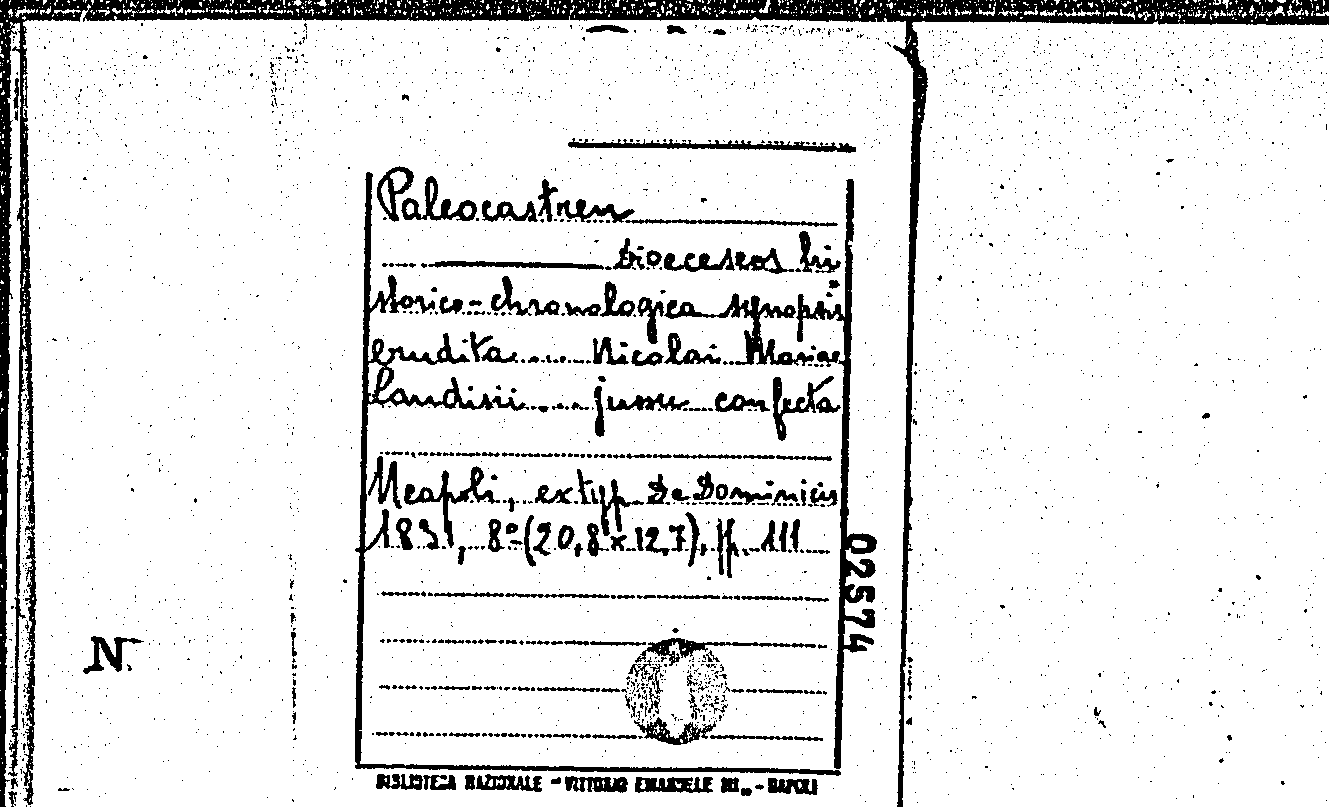 Paleocastren
Dioeceseos hi
storico-chronologica synopsis
erudita.... Nicolai Mariae
Laudisii.... jussu confecta
Neapoli, ex typ. De Dominicis
1831, 8º (20,8 x 12,7), pp. 111
02574
N.
BIBLIOTECA NAZIONALE "VITTORIO EMANUELE III" - NAPOLI